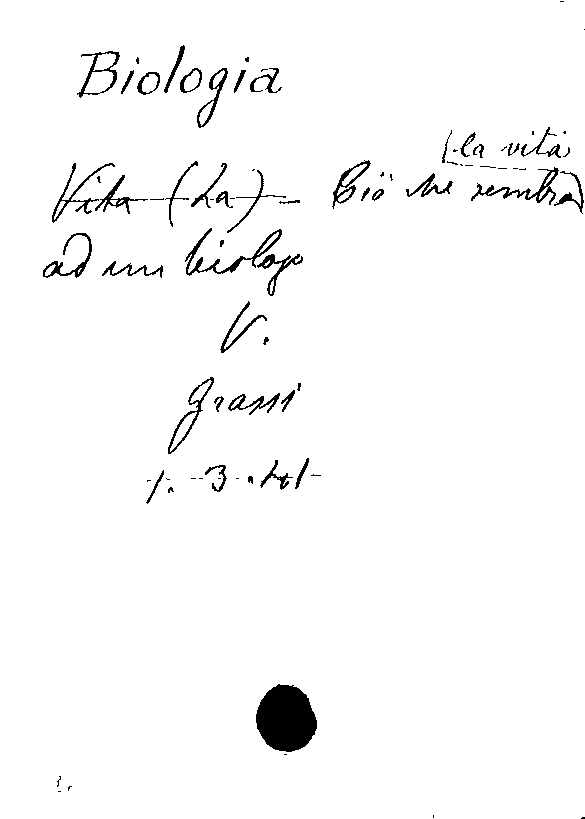 Biologia
la vita
Vita (La) - Ciò che sembra
ad un biologo
V.
Grassi
1. 3.